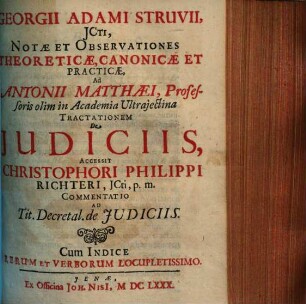 GEORGII ADAMI STRUVII,
JCti,
NOTÆ ET OBSERVATIONES
THEORETICÆ, CANONICÆ ET
PRACTICÆ,
AD
ANTONII MATTHÆI, Profes-
soris olim in Academia Ultrajectina
TRACTATIONEM
De
JUDICIIS,
ACCESSIT
CHRISTOPHORI PHILIPPI
RICHTERI, JCti, p. m.
COMMENTATIO
AD
Tit. Decretal. de JUDICIIS.
Cum INDICE
RERUM ET VERBORUM LOCUPLETISSIMO.
JENÆ,
Ex Officina JOH. NISI, M DC LXXX.